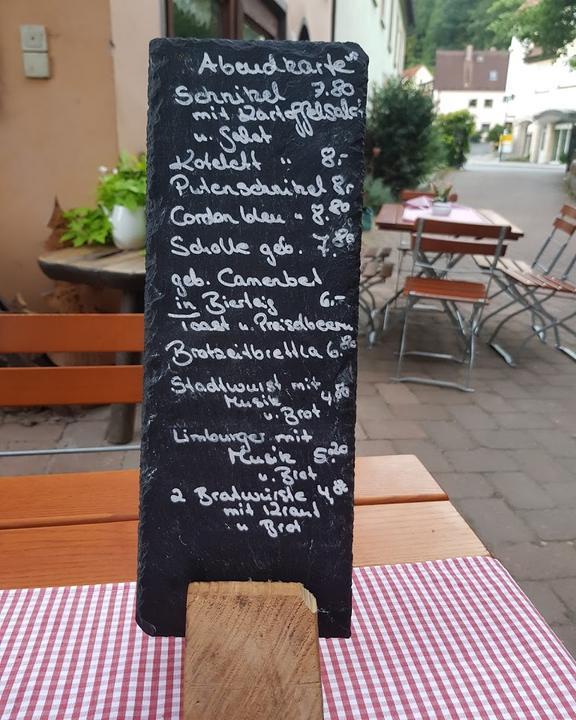 Abendkarte
Schnitzel 7.80
mit Kartoffelsalat
u. Salat
Kotelett " 8.-
Putenschnitzel 8.-
Cordon bleu " 8.80
Scholle geb. 7.80
geb. Camenbel
in Bierteig 6.-
Toast u. Preiselbeern
Brotzeitbrettla 6.80
Stadtwurst mit
Musik 4.80
u. Brot
Limburger mit
Musik 5.20
u. Brot
2 Bratwürste 4,80
mit Kraut
u Brot